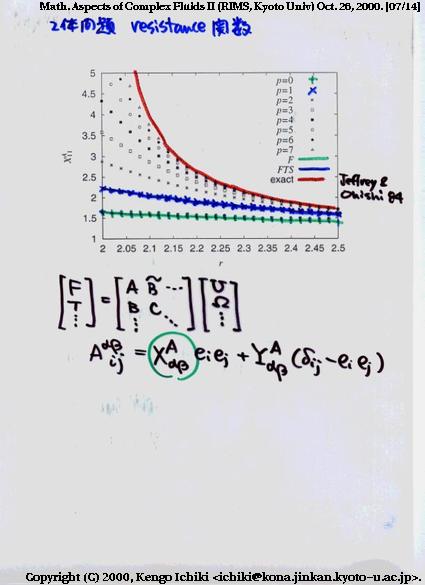 Math. Aspects of Complex Fluids II (RIMS, Kyoto Univ) Oct. 26, 2000. [07/14]
2体問題 resistance 関数
5
4.5
4
3.5
3
2.5
2
1.5
1
2 2.05 2.1 2.15 2.2 2.25 2.3 2.35 2.4 2.45 2.5
r
p=0
p=1
p=2
p=3
p=4
p=5
p=6
p=7
F
FTS
exact
Jeffrey &
Onishi 84
[F T ⋮] = [A B̃ ⋯ B C ⋱ ⋮] [U Ω ⋮]
A^{αβ}_{ij} = X^A_{αβ} e_i e_j + Y^A_{αβ} (δ_{ij} − e_i e_j)
Copyright (C) 2000, Kengo Ichiki <ichiki@kona.jinkan.kyoto-u.ac.jp>.